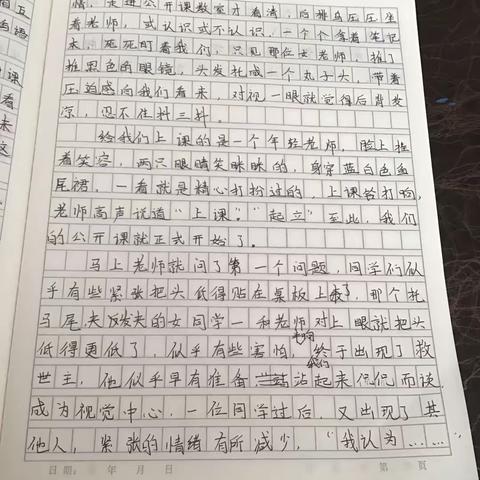 情，走进公开课教室才看清，后排乌压压坐
着老师，或认识或不认识，一个个拿着笔记
本，死死盯着我们，只见那位女老师，推了
推黑色的眼镜，头发扎成一个丸子头，带着
压迫感向我们看来，对视一眼就觉得后背发
凉，忍不住抖三抖。
给我们上课的是一个年轻老师，脸上挂
着笑容，两只眼睛笑眯眯的，身穿蓝白色鱼
尾裙，一看就是精心打扮过的，上课铃打响，
老师高声说道“上课。”“起立”至此，我们
的公开课就正式开始了。
马上老师就问了第一个问题，同学们似
乎有些紧张把头低得贴在桌板上了，那个扎
马尾夹发夹的女同学一和老师对上眼就把头
低得更低了，似乎有些害怕，终于出现了救
世主，他似乎早有准备站起来侃侃而谈，
成为视觉中心，一位同学过后，又出现了其
他人，紧张的情绪有所减少，“我认为……”
日期： 年 月 日
第 页
五
课
看
未
这